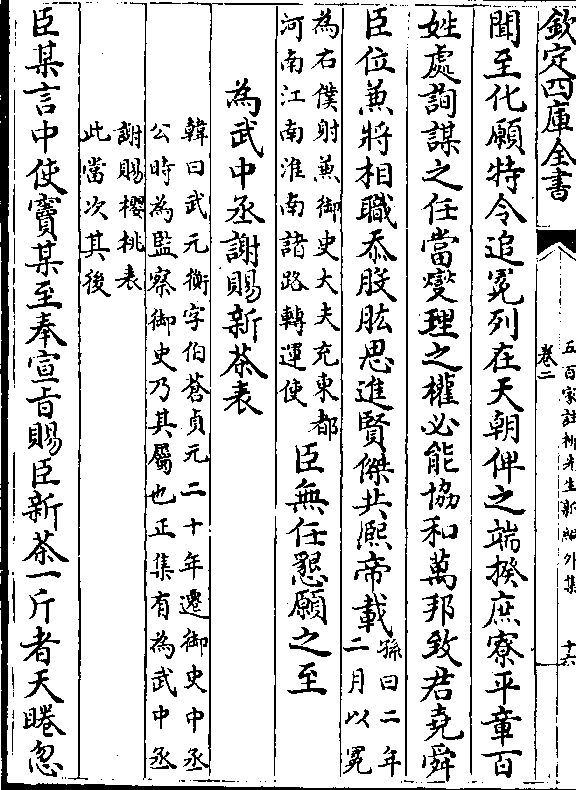 欽定四庫全書
五百家註柳先生新編外集
卷二
十六
聞至化願特令追冕列在天朝俾之端揆庶寮平章百
姓處詢謀之任當燮理之權必能協和萬邦致君堯舜
臣位兼將相職忝股肱思進賢傑共熙帝載孫曰二年
二月以冕
為右僕射兼御史大夫充東都
河南江南淮南諸路轉運使
臣無任懇願之至
為武中丞謝賜新茶表
韓曰武元衡字伯蒼貞元二十年遷御史中丞
公時為監察御史乃其屬也正集有為武中丞
謝賜櫻桃表
此當次其後
臣某言中使竇某至奉宣旨賜臣新茶一斤者天睠忽